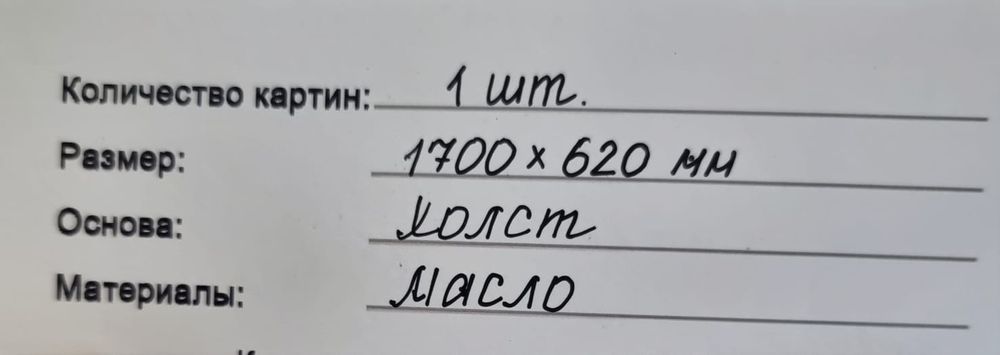 Количество картин: 1 шт.
Размер: 1700 х 620 мм
Основа: холст
Материалы: масло